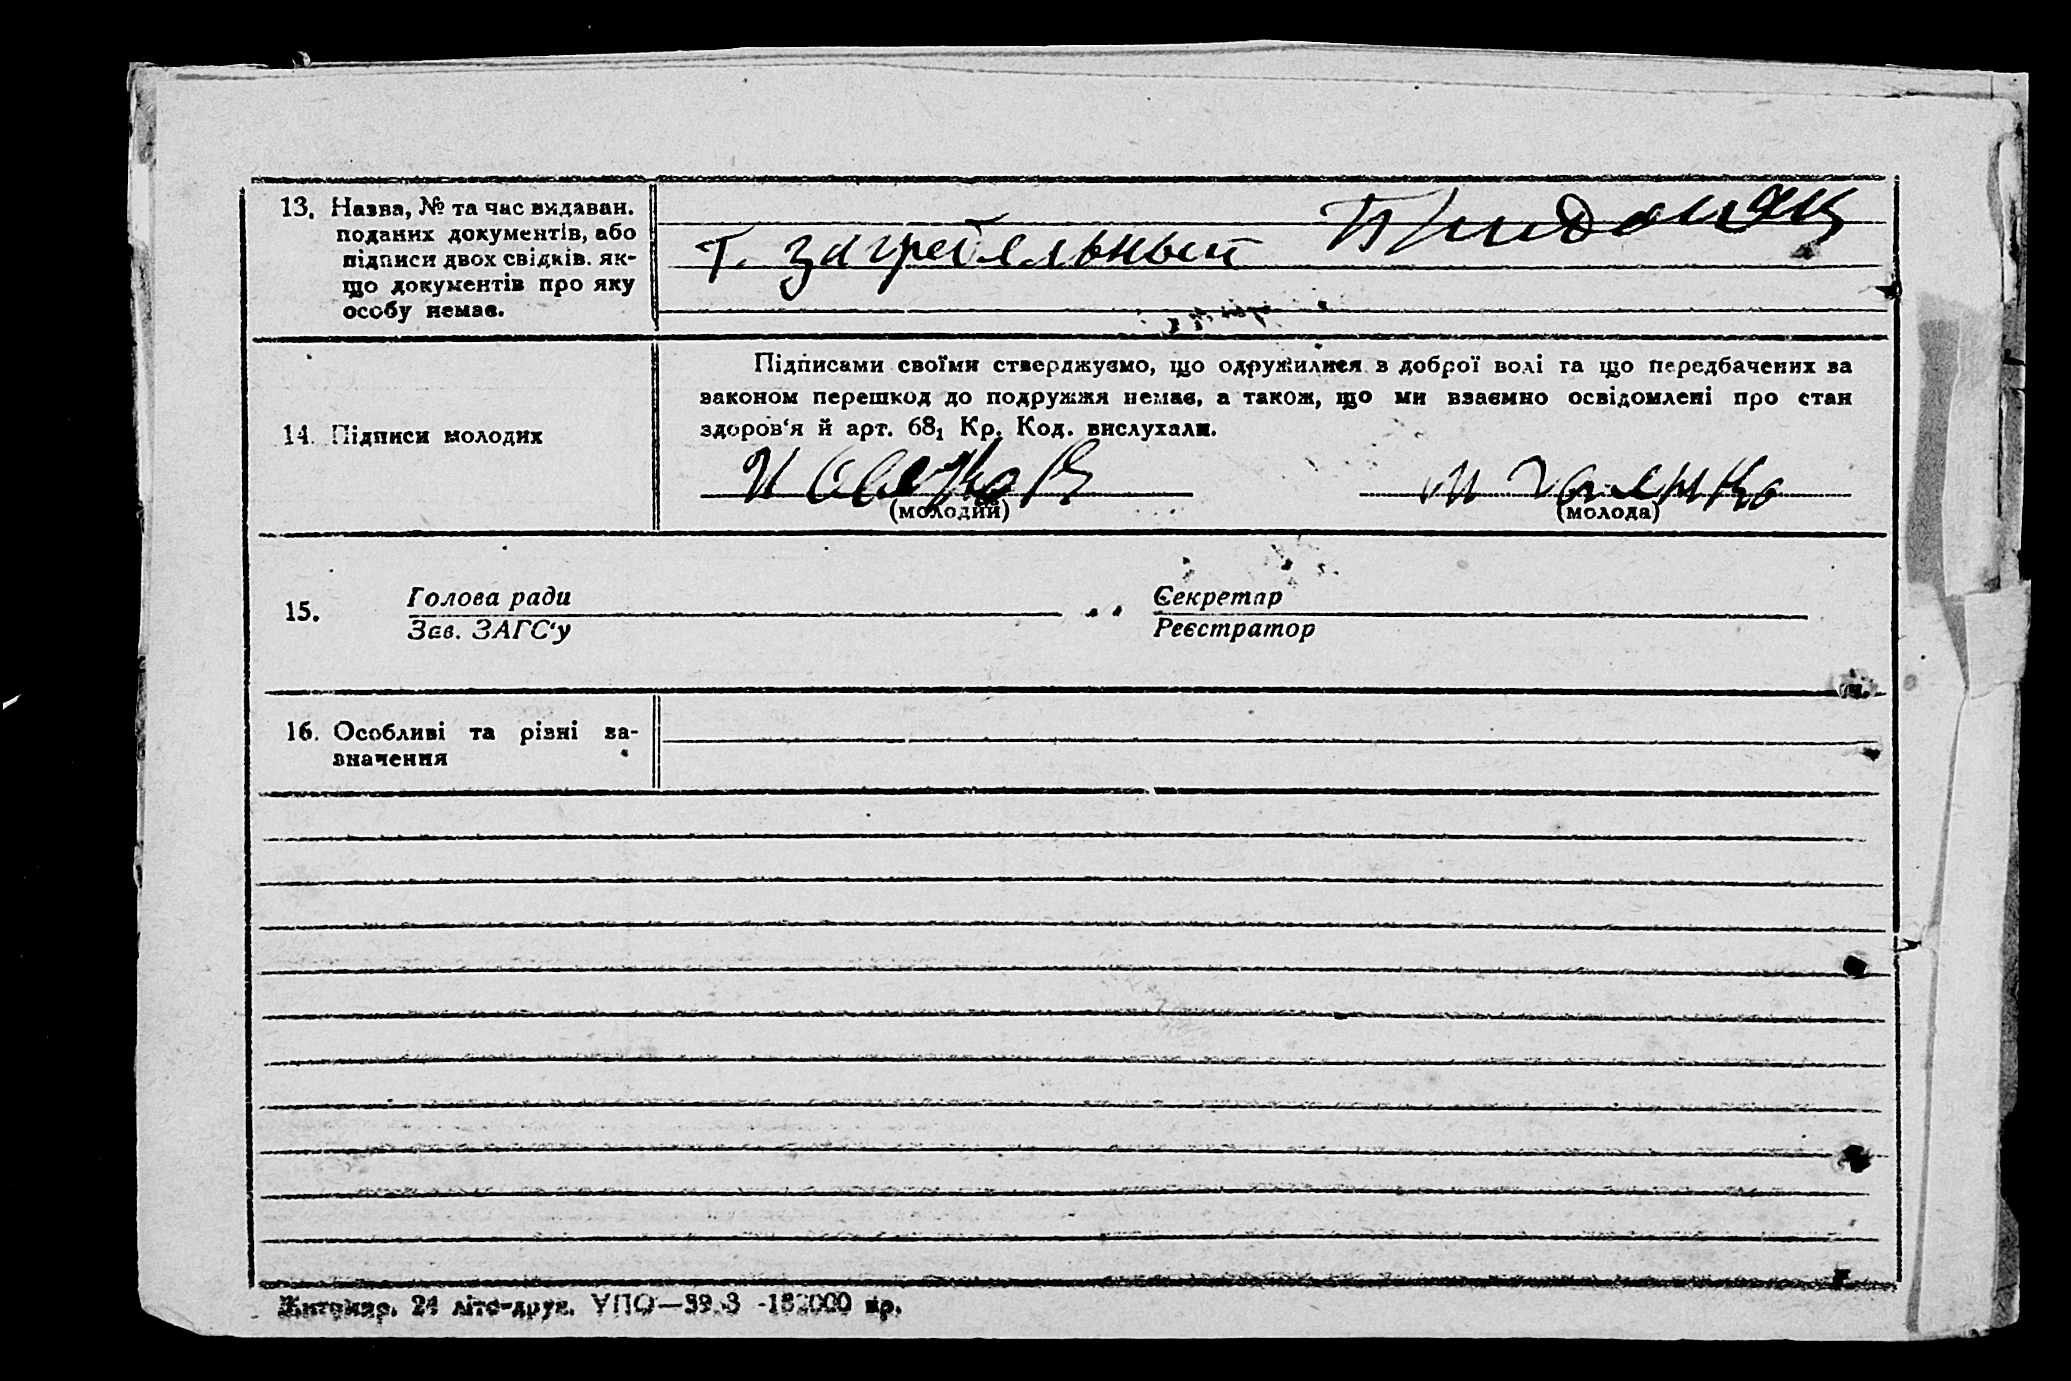 13. Назва, № та час видаван.
поданих документів, або
підписи двох свідків. як-
що документів про яку
особу немає.
Т. Загребельный
Підписами своїми стверджуємо, що одружилися з доброї волі та що передбачених за
законом перешкод до подружжя немає, а також, що ми взаємно освідомлені про стан
здоров'я й арт. 68₁ Кр. Код. вислухали.
14. Підписи молодих
(молодий) (молода)
15. Голова ради Секретар
Зав. ЗАГС'у Реєстратор
16. Особливі та різні за-
значення
Житомир. 24 літо-друк.